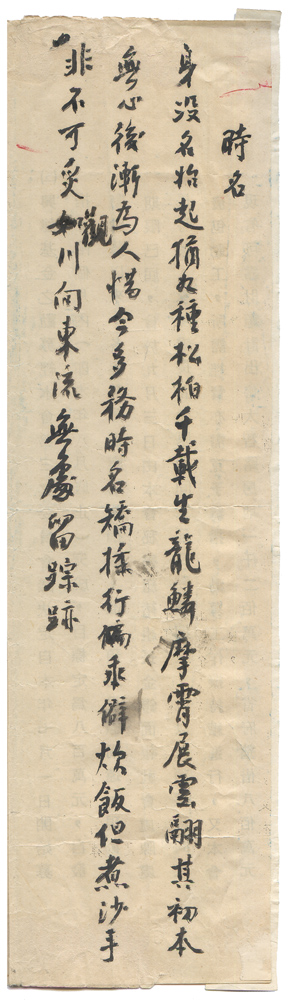 時名
身没名始起猶如種松柏千載生龍鱗摩霄展雲翮其初本
無心後漸為人惜今多務時名矯揉行偏乖僻炊飯但煮沙手
非不可炙觀川向東流無處留踪跡